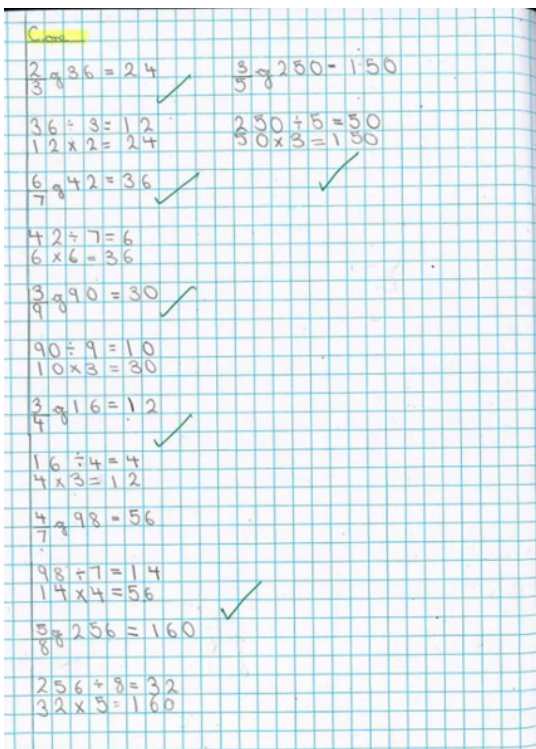 Core
2/3 of 36 = 24
36 ÷ 3 = 12
12 x 2 = 24
6/7 of 42 = 36
42 ÷ 7 = 6
6 x 6 = 36
3/9 of 90 = 30
90 ÷ 9 = 10
10 x 3 = 30
3/4 of 16 = 12
16 ÷ 4 = 4
4 x 3 = 12
4/7 of 98 = 56
98 ÷ 7 = 14
14 x 4 = 56
5/8 of 256 = 160
256 ÷ 8 = 32
32 x 5 = 160
3/5 of 250 = 150
250 ÷ 5 = 50
50 x 3 = 150